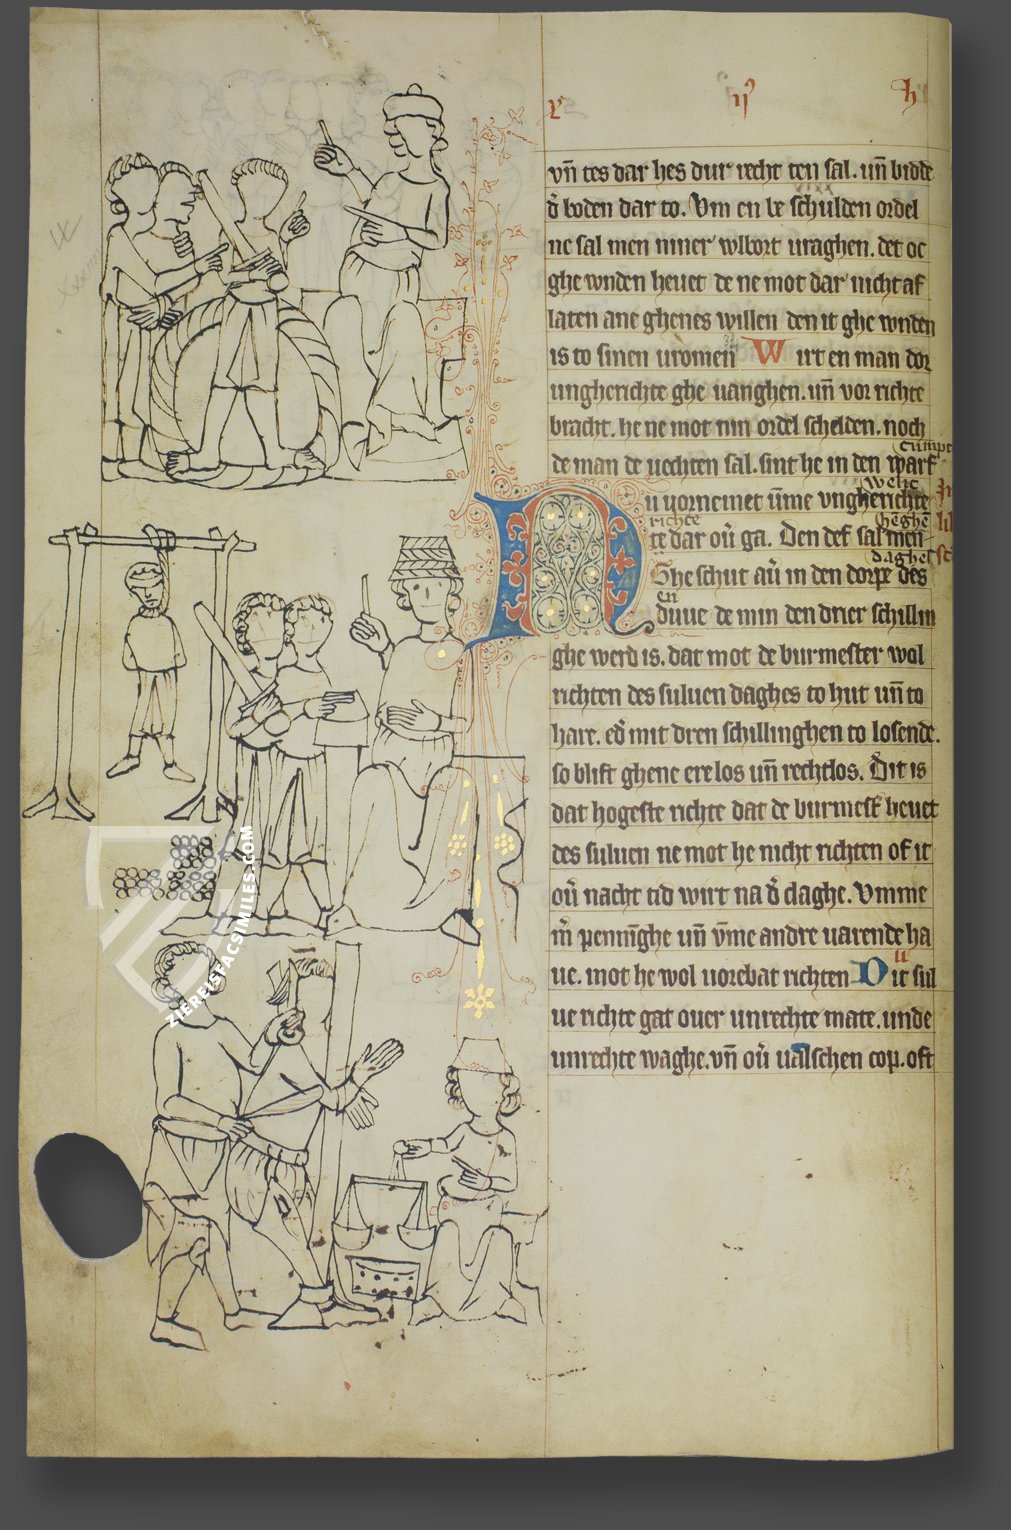 ij h
vn̄ tes dar hes dur recht ten sal. un̄ bidde
d̓ boden dar to. Vm en be schulden ordel
ne sal men niner wlbort uraghen. det oc
ghe wnden heuet de ne mot dar nicht af
laten ane ghenes willen den it ghe wnden
is to sinen uromen Wirt en man dor
ungherichte ghe uanghen. un̄ vor richte
bracht. he ne mot nin ordel schelden. noch
cumpt
de man de uechten sal. sint he in den warf
welc
Nu uornemet ūme vngherichte
richte hēghē
te dar ou̓ ga. Den def sal men
daghes
She schut au̓ in den dorpe des
en
duue de min den drier schillin
ghe werd is. dat mot de burmester wol
richten des suluen daghes to hut un̄ to
hare. ed̓ mit dren schillinghen to losende.
so blift ghene ere los un̄ rechtlos. Dit is
dat hogeste richte dat de burmest̓ heuet
des suluen ne mot he nicht richten of it
ou̓ nacht tid wirt na d̓ daghe. Vmme
m̓ penni̅ghe un̄ v̄me andre uarende ha
ue. mot he wol uorebat richten Dit sul
ue richte gat ouer unrechte mate. unde
unrechte waghe. vn̄ ou̓ ualschen cop. oft
ZIEREISFACSIMILES.COM